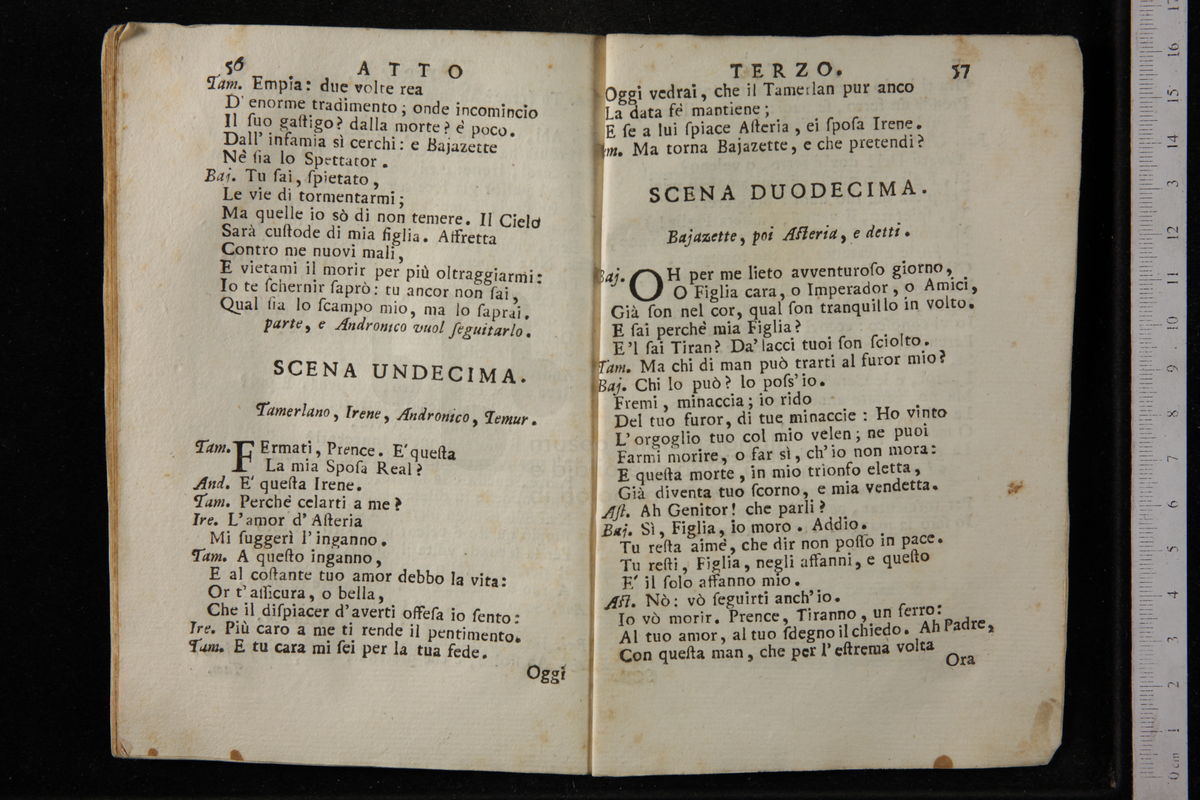 56 ATTO
Tam. Empia: due volte rea
D' enorme tradimento; onde incomincio
Il ſuo gaſtigo? dalla morte? è poco.
Dall' infamia sì cerchi: e Bajazette
Nè ſia lo Spettator.
Baj. Tu ſai, ſpietato,
Le vie di tormentarmi;
Ma quelle io sò di non temere. Il Cielo
Sarà cuſtode di mia figlia. Affretta
Contro me nuovi mali,
E vietami il morir per più oltraggiarmi:
Io te ſchernir ſaprò: tu ancor non ſai,
Qual ſia lo ſcampo mio, ma lo ſaprai.
parte, e Andronico vuol ſeguitarlo.
SCENA UNDECIMA.
Tamerlano, Irene, Andronico, Temur.
Tam. FErmati, Prence. E' queſta
La mia Spoſa Real?
And. E' queſta Irene.
Tam. Perchè celarti a me?
Ire. L'amor d' Aſteria
Mi ſuggerì l'inganno.
Tam. A queſto inganno,
E al coſtante tuo amor debbo la vita:
Or t'aſſicura, o bella,
Che il diſpiacer d'averti offeſa io ſento:
Ire. Più caro a me ti rende il pentimento.
Tam. E tu cara mi ſei per la tua fede.
Oggi
TERZO. 57
Oggi vedrai, che il Tamerlan pur anco
La data fè mantiene;
E ſe a lui ſpiace Aſteria, ei ſpoſa Irene.
em. Ma torna Bajazette, e che pretendi?
SCENA DUODECIMA.
Bajazette, poi Aſteria, e detti.
Baj. OH per me lieto avventuroſo giorno,
O Figlia cara, o Imperador, o Amici,
Già ſon nel cor, qual ſon tranquillo in volto.
E ſai perchè mia Figlia?
E'l ſai Tiran? Da' lacci tuoi ſon ſciolto.
Tam. Ma chi di man può trarti al furor mio?
Baj. Chi lo può? lo poſs'io.
Fremi, minaccia; io rido
Del tuo furor, di tue minaccie: Ho vinto
L'orgoglio tuo col mio velen; ne puoi
Farmi morire, o far sì, ch'io non mora:
E queſta morte, in mio trionfo eletta,
Già diventa tuo ſcorno, e mia vendetta.
Aſt. Ah Genitor! che parli?
Baj. Sì, Figlia, io moro. Addio.
Tu reſta aimè, che dir non poſſo in pace.
Tu reſti, Figlia, negli affanni, e queſto
E' il ſolo affanno mio.
Aſt. Nò: vò ſeguirti anch'io.
Io vò morir. Prence, Tiranno, un ferro:
Al tuo amor, al tuo ſdegno il chiedo. Ah Padre,
Con queſta man, che per l'eſtrema volta
Ora